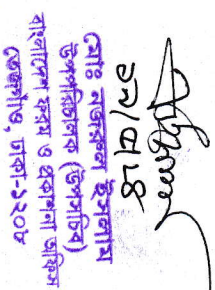 ১৮/১/১৬
মোঃ নজরুল ইসলাম
উপপরিচালক (উপসচিব)
বাংলাদেশ ফরম ও প্রকাশনা অফিস
তেজগাঁও, ঢাকা-১২০৮